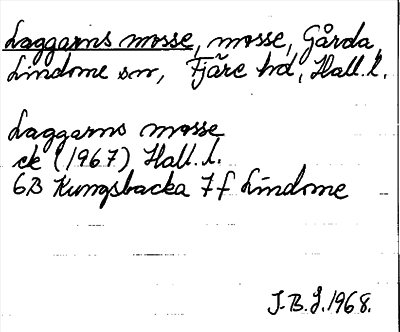 Laggarns mosse, mosse, Gårda,
Lindome sn, Fjäre hd, Hall. l.
Laggarns mosse
ek (1967) Hall. l.
6B Kungsbacka 7f Lindome
J.B.J. 1968.